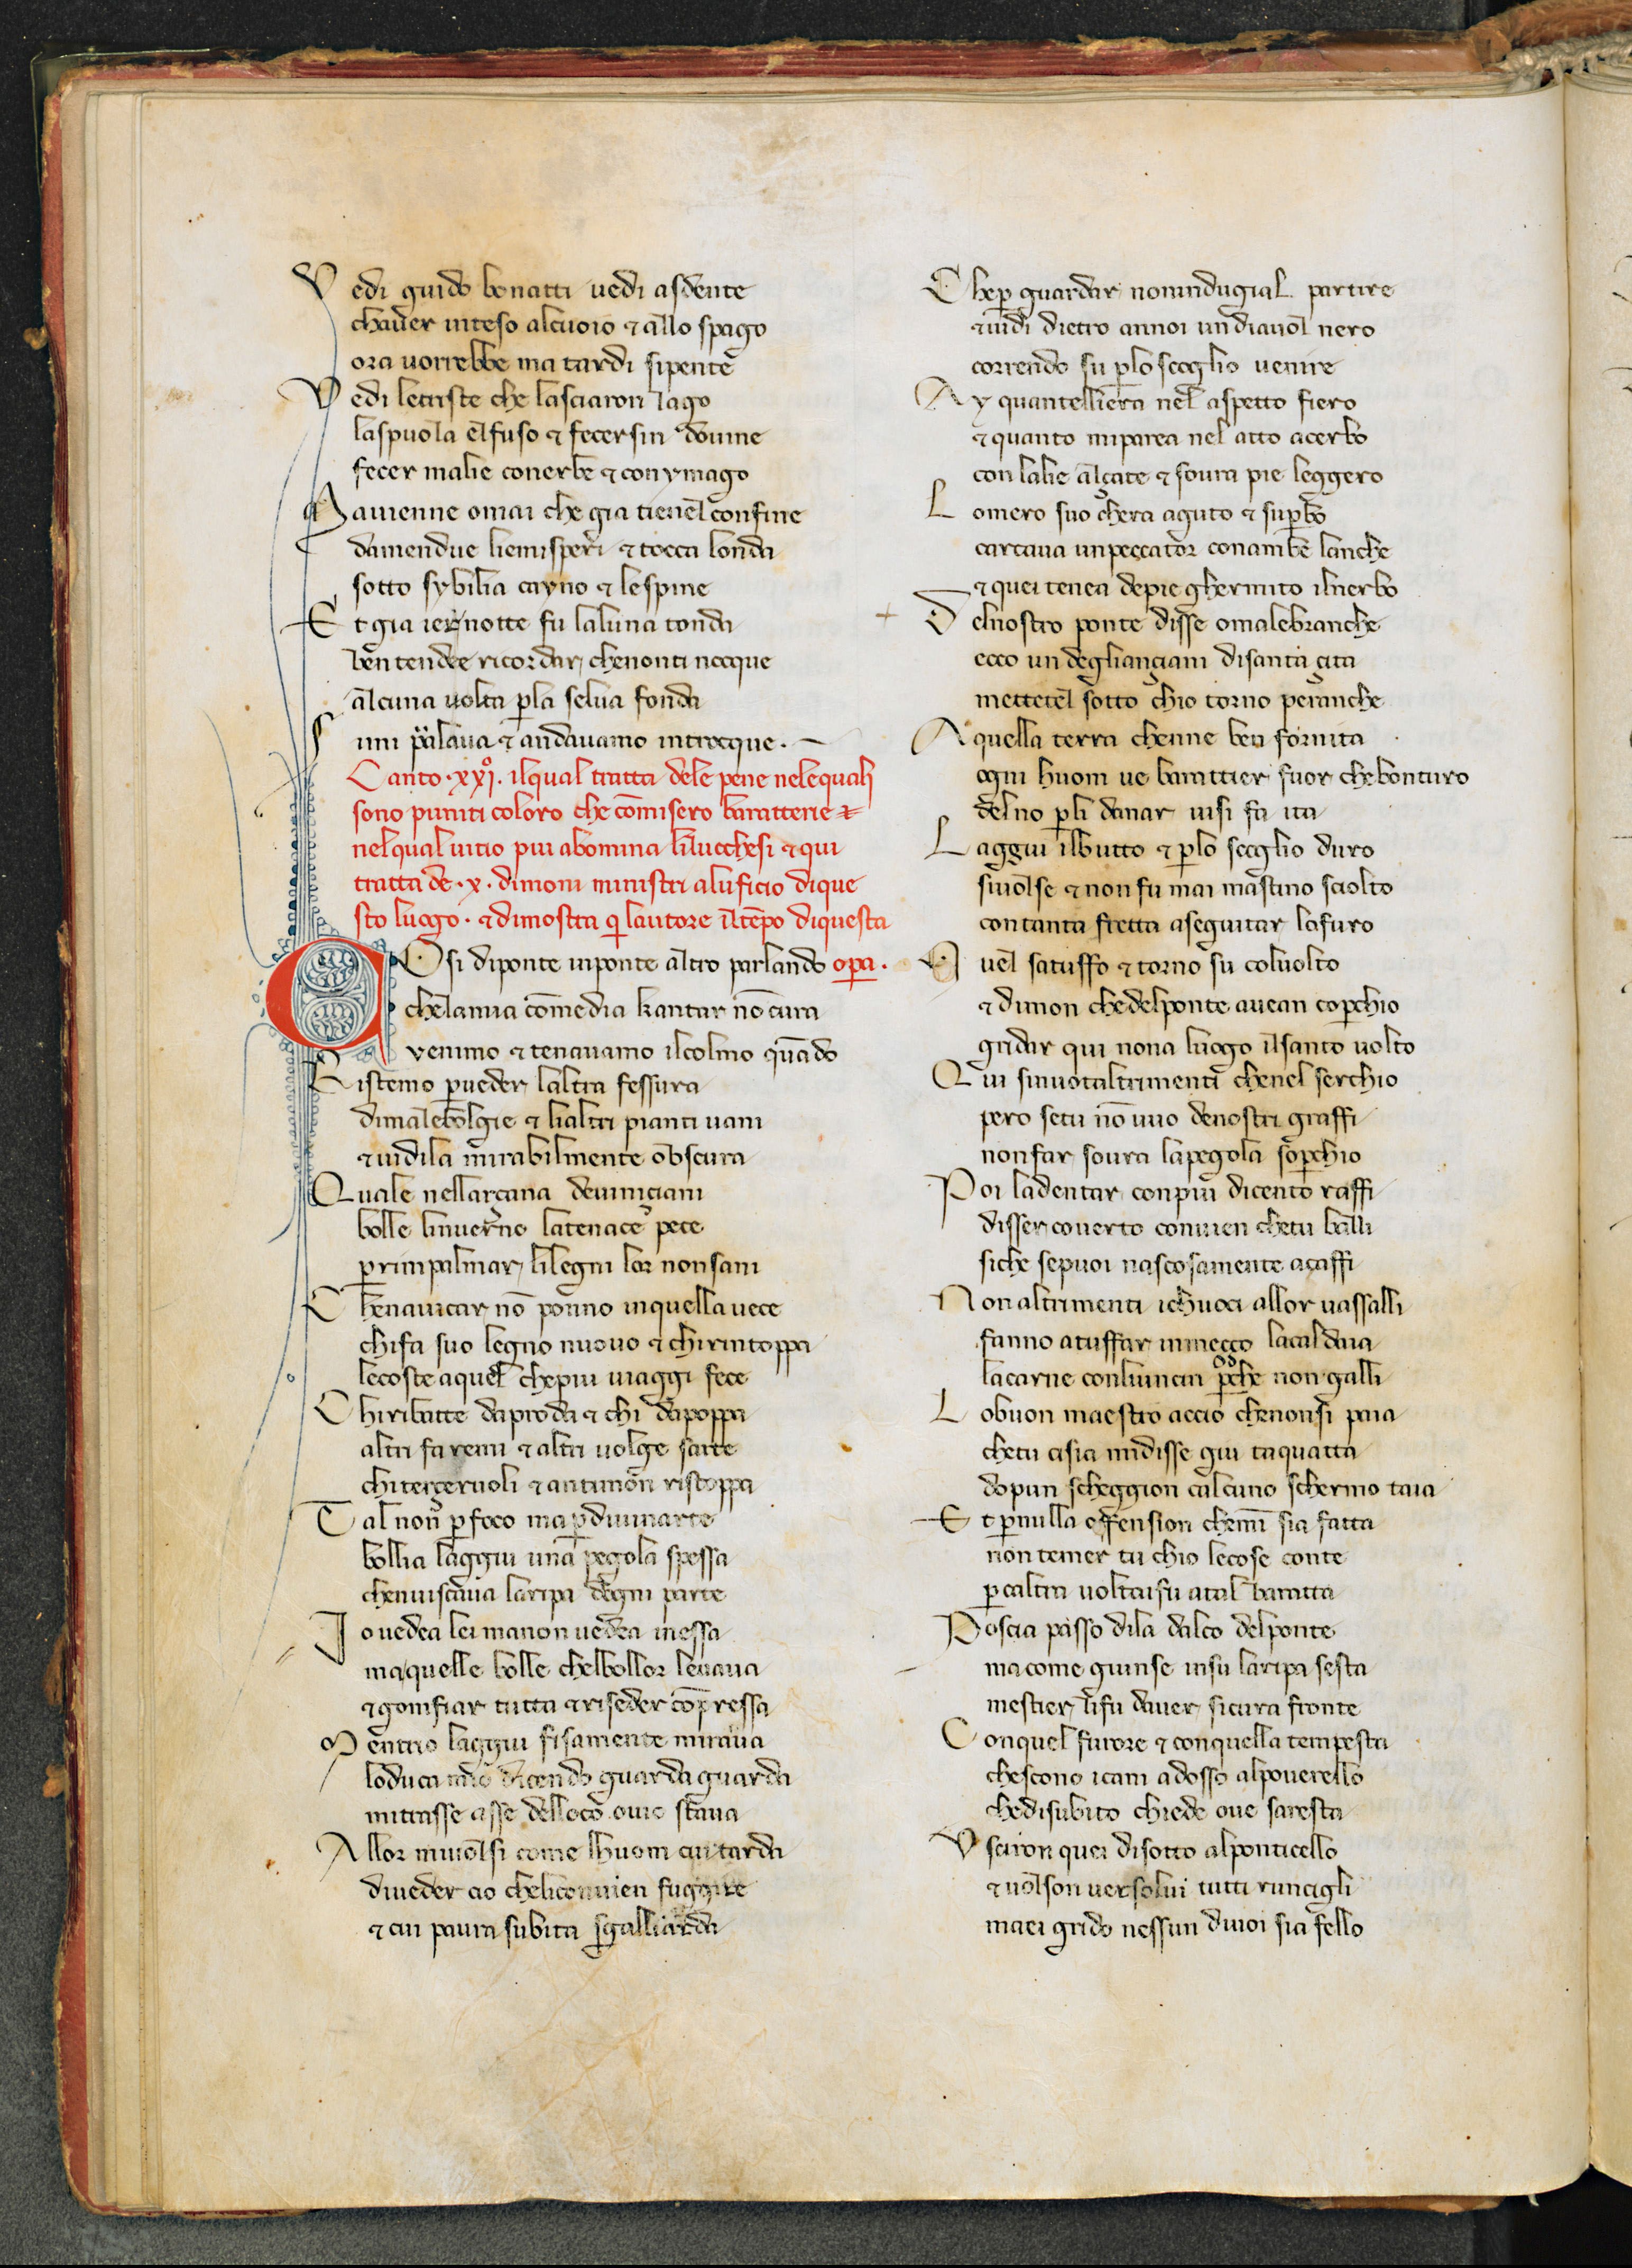 Vedi guido bonatti uedi asdente
chauer inteso alcuoio ⁊ allo spago
ora uorrebbe ma tardi sipente
Vedi letriste che lasciaron lago
laspuola elfuso ⁊ fecersin douine
fecer malie conerbe ⁊ conymago
Mauienne omai che gia tienel confine
damendue liemisperi ⁊ tocca londa
sotto sybilia cayno ⁊ lespine
Et gia iernotte fu laluna tonda
ben tendee ricordar chenonti nocque
alcuna uolta p̱la selua fonda
Simi parlaua ⁊ andauamo introcque.
Canto .xxiº. ilqual tratta dele pene nelequali
sono puniti coloro che cōmisero baratterie ⁊
nelqual uitio piu abomina lilucchesi ⁊ qui
tratta de .x. dimoni ministri aluficio dique
sto luogo. ⁊ dimostra q̱ lautore iltēpo diquesta
Cosi diponte inponte altro parlando op̱a.
chelamia cōmedia kantar nō cura
venimo ⁊ tenauamo ilcolmo quādo
Ristemo p̱ueder laltra fessura
dimalebolgie ⁊ lialtri pianti uani
⁊ uidila mirabilmente obscura
Quale nellarçana deuiniçiani
bolle linuerno latenace pece
p̱rimpalmar lilegni lor nonsani
Che nauicar nō ponno inquella uece
chifa suo legno nuouo ⁊ chirintoppa
lecoste aquel chepiu uiaggi fece
Chiribatte daproda ⁊ chi dapoppa
altri fa remi ⁊ altri uolge sarte
chiterçeruoli ⁊ antimon ristoppa
Tal non p̱foco ma p̱diuinarte
bollia laggiu una pegola spessa
chenuiscaua laripa dogni parte
Io uedea lei manon uedea inessa
maquelle bolle chelbollor leuaua
⁊ gonfiar tutta ⁊ riseder cōpressa
Mentrio laggiu fisamente miraua
loduca mio dicendo guarda guarda
mitrasse asse delloco ouio staua
Allor miuolsi come lhuom cui tarda
diueder cio chelicōnuien fuggire
⁊ cui paura subita sgalliarda
Chep̱ guardar nonindugial partire
⁊ uidi dietro annoi undiauol nero
correndo su p̱lo scoglio uenire
Ay quantelliera nel aspetto fiero
⁊ quanto miparea nel atto acerbo
con lalie alçate ⁊ soura pie leggero
Lomero suo chera aguto ⁊ sup̱bo
carcaua unpeccator conambe lanche
⁊ quei tenea depie ghermito ilnerbo
Delnostro ponte disse omalebranche
ecco un degliançiani disanta çita
mettetel sotto chio torno peranche
Aquella terra chenne ben fornita
ogni huom ue barattier fuor chebonturo
delno p̱li danar uisi fa ita
Laggiu ilbutto ⁊ p̱lo scoglio duro
siuolse ⁊ non fu mai mastino sciolto
contanta fretta aseguitar lofuro
Quel satuffo ⁊ torno su coluolto
⁊ dimon chedelponte auean cop̱chio
gridar qui nona luogo ilsanto uolto
Qui sinuotaltrimenti chenel serchio
pero setu nō uuo denostri graffi
nonfar soura lapegola sop̱chio
Poi ladentar conpiu dicento raffi
disser couerto conuien chetu balli
siche sepuoi nascosamente açaffi
Non altrimenti ichuoci allor uassalli
fanno atuffar inmeçço lacaldaia
lacarne conliuncin p̱che non galli
Lobuon maestro accio chenonsi paia
chetu cisia midisse giu taquatta
dopun scheggion calcuno schermo taia
Et p̱nulla offension chemi sia fatta
non temer tu chio lecose conte
p̱caltra uoltaisu atal baratta
Poscia passo dila dalco delponte
macome giunse insu laripa sesta
mestier lifu dauer sicura fronte
Conquel furore ⁊ conquella tempesta
chescono icani adosso alpouerello
chedisubito chiede oue saresta
Vsciron quei disotto alponticello
⁊ uolson uersolui tutti runcigli
maei grido nessun diuoi sia fello